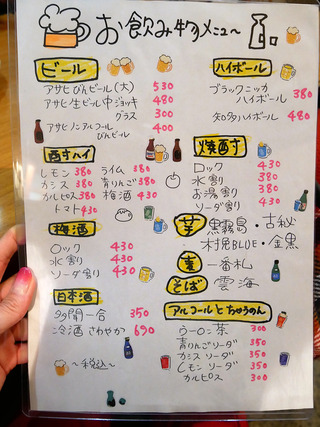 お飲み物メニュ～
ビール
アサヒびんビール(大) 530
アサヒ生ビール中ジョッキ 480
グラス 300
アサヒノンアルコールびんビール 400
酎ハイ
レモン 380 ライム 380
カシス 380 青りんご 380
カルピス 380 梅酒 430
トマト 430
梅酒
ロック 430
水割り 430
ソーダ割り 430
日本酒
多聞一合 350
冷酒 さわやか 690
～税込～
ハイボール
ブラックニッカ
ハイボール 380
知多ハイボール 480
焼酎
ロック 430
水割 380
お湯割り 380
ソーダ割り 430
芋 黒霧島・古秘
木挽BLUE・金黒
麦 一番札
そば 雲海
アルコールとちゅうのん
ウーロン茶 300
青りんごソーダ 350
カシスソーダ 350
レモンソーダ 350
カルピス 300